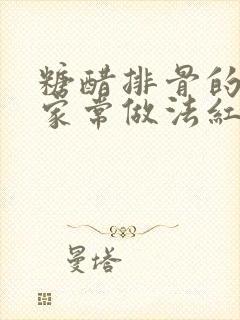 糖醋排骨的
家常做法红
曼塔